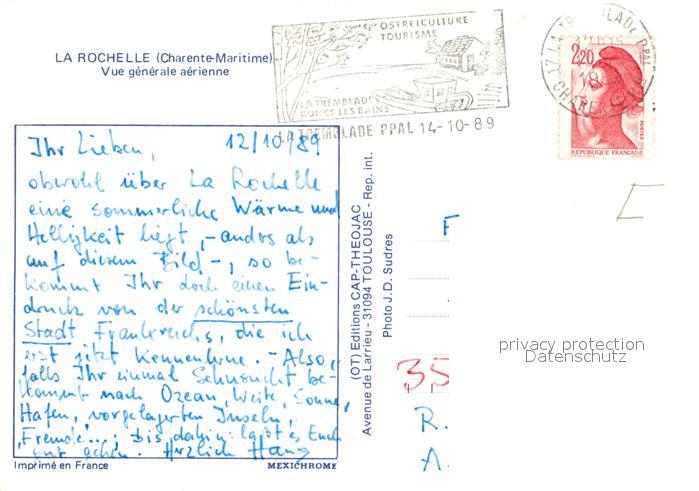 LA ROCHELLE (Charente-Maritime)
Vue générale aérienne
OSTREICULTURE
TOURISME
LA TREMBLADE
RONCE LES BAINS
LA TREMBLADE PPAL 14-10-89
2,20
POSTES
REPUBLIQUE FRANÇAISE
Ihr Lieben, 12/10/89
obwohl über La Rochelle
eine sommerliche Wärme und
Helligkeit liegt, - anders als
auf diesem Bild -, so be-
kommt Ihr doch einen Ein-
druck von der schönsten
Stadt Frankreichs, die ich
erst jetzt kennenlerne. - Also,
falls Ihr einmal Sehnsucht be-
kommt nach Ozean, Weite, Sonne,
Hafen, vorgelagerten Inseln,
Fremde...; bis dahin: laßt es Euch
gut gehen. Herzlich Hans
(OT) Editions CAP-THEOJAC
Avenue de Larrieu - 31094 TOULOUSE - Rep. int.
Photo J.D. Sudres
F
35
R.
A.
privacy protection
Datenschutz
Imprimé en France
MEXICHROME